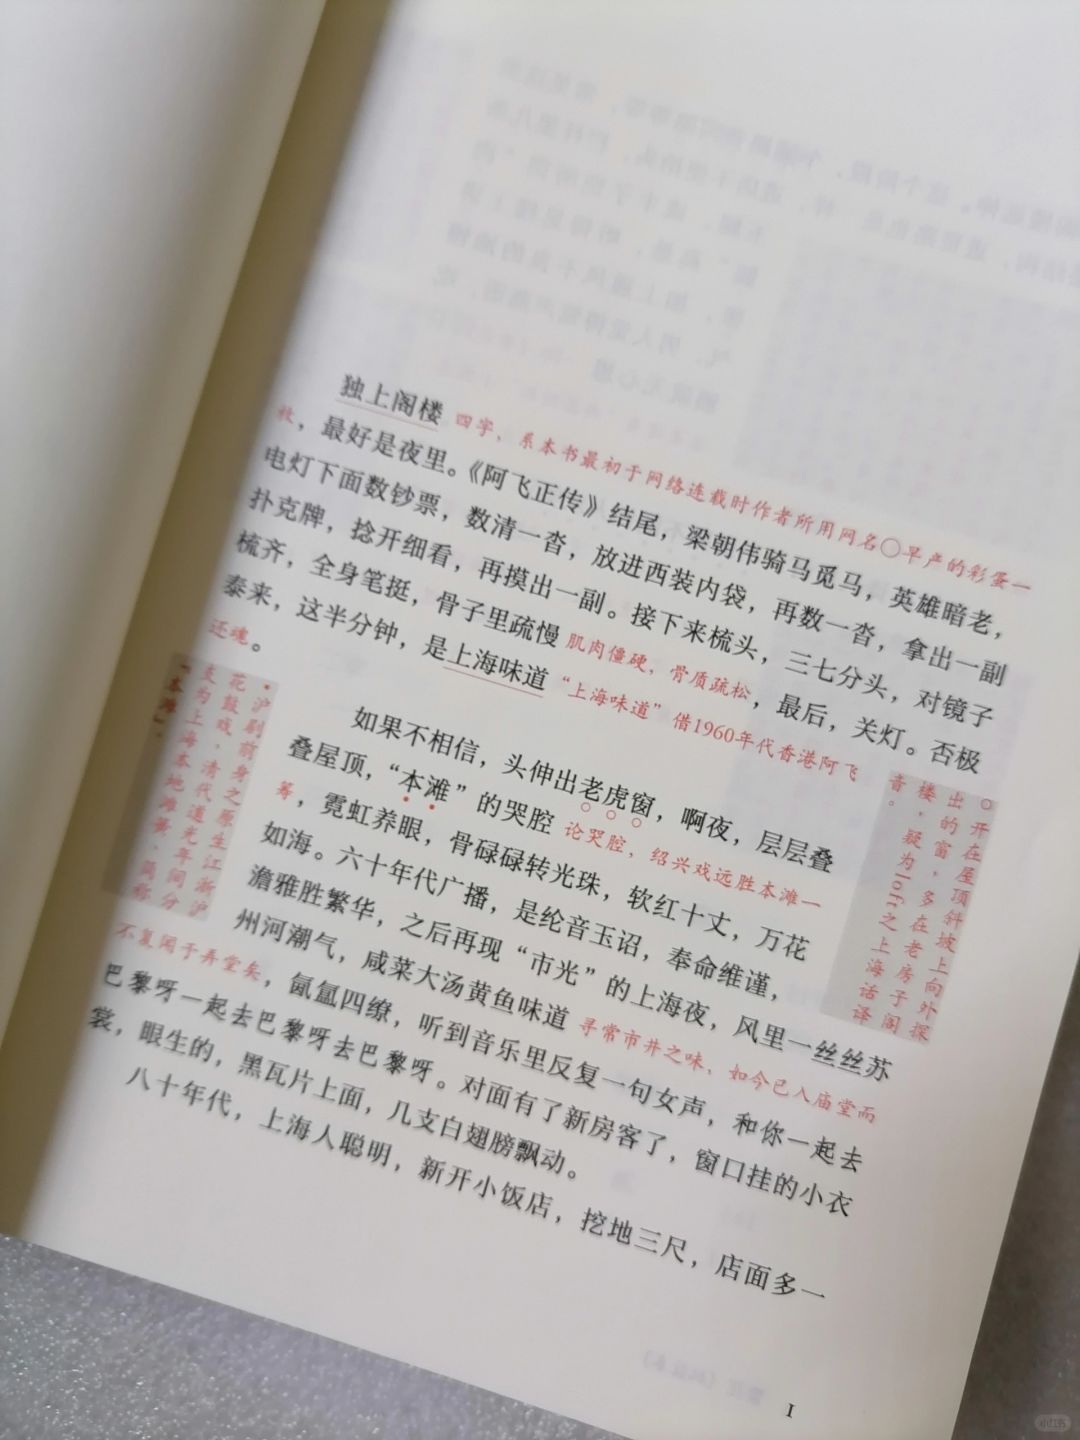 独上阁楼 四字，系本书最初于网络连载时作者所用网名〇早产的彩蛋一
枚，最好是夜里。《阿飞正传》结尾，梁朝伟骑马觅马，英雄暗老，
电灯下面数钞票，数清一沓，放进西装内袋，再数一沓，拿出一副
扑克牌，捻开细看，再摸出一副。接下来梳头，三七分头，对镜子
梳齐，全身笔挺，骨子里疏慢 肌肉僵硬，骨质疏松，最后，关灯。否极
泰来，这半分钟，是上海味道 “上海味道”借1960年代香港阿飞
还魂。
如果不相信，头伸出老虎窗，啊夜，层层叠
叠屋顶，“本滩”的哭腔 论哭腔，绍兴戏远胜本滩一
筹，霓虹养眼，骨碌碌转光珠，软红十丈，万花
如海。六十年代广播，是纶音玉诏，奉命维谨，
澹雅胜繁华，之后再现“市光”的上海夜，风里一丝丝苏
州河潮气，咸菜大汤黄鱼味道 寻常市井之味，如今已入庙堂而
不复闻于弄堂矣，氤氲四缭，听到音乐里反复一句女声，和你一起去
巴黎呀一起去巴黎呀去巴黎呀。对面有了新房客了，窗口挂的小衣
裳，眼生的，黑瓦片上面，几支白翅膀飘动。
八十年代，上海人聪明，新开小饭店，挖地三尺，店面多一
〇开在屋顶斜坡上向外探
出的窗，多在老房子阁
楼，疑为loft之上海话译
音。
•沪剧前身之原生江浙沪
花鼓戏，清代道光年间分
支为上海本地滩簧，简称
「本滩」。
1
小红书